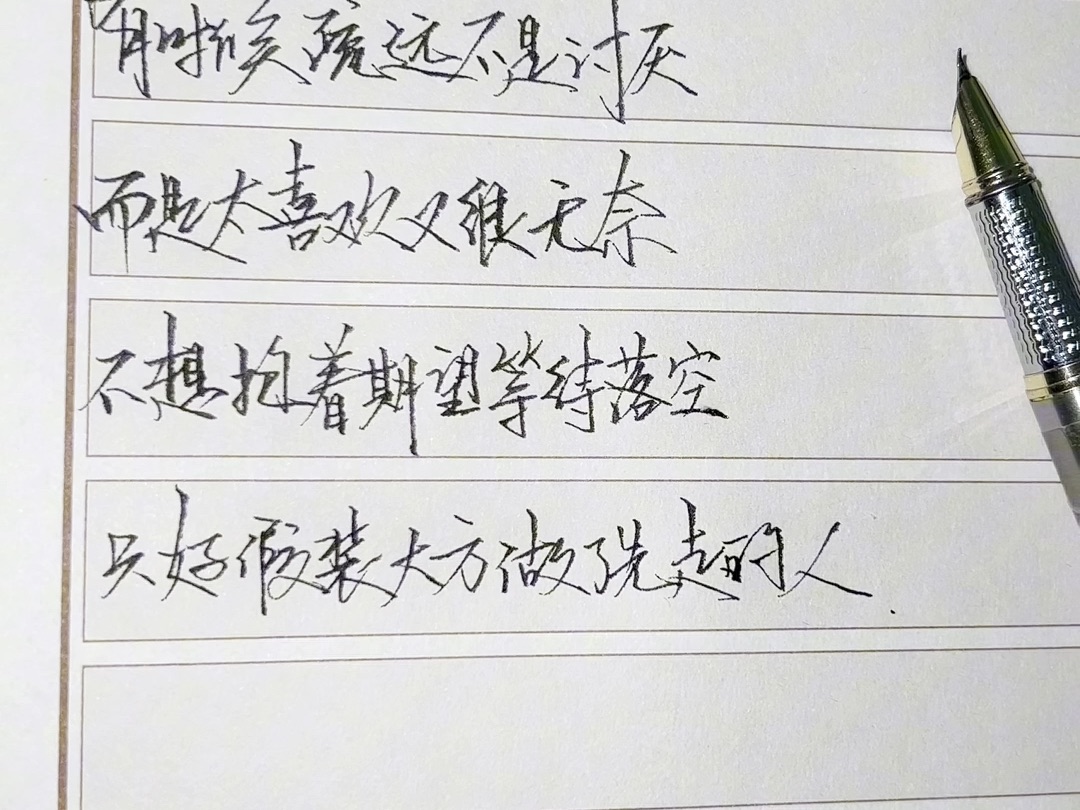 有时候疏远不是讨厌
而是太喜欢又很无奈
不想抱着期望等待落空
只好假装大方做了先走的人.